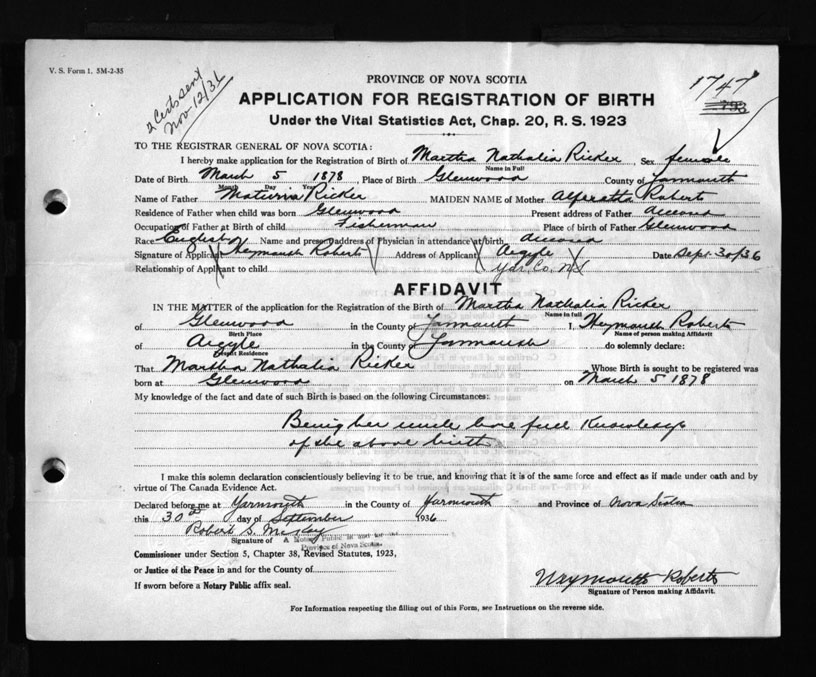 V. S. Form 1. 5M-2-35
2 Certs sent
Nov-12/36
1747
793
PROVINCE OF NOVA SCOTIA
APPLICATION FOR REGISTRATION OF BIRTH
Under the Vital Statistics Act, Chap. 20, R. S. 1923
TO THE REGISTRAR GENERAL OF NOVA SCOTIA:
I hereby make application for the Registration of Birth of Martha Nathalia Ricker, Sex female
Name in Full
Date of Birth March 5 1878, Place of Birth Glenwood County of Yarmouth
Month Day Year
Name of Father Ricker MAIDEN NAME of Mother Roberts
Residence of Father when child was born Glenwood Present address of Father
Occupation of Father at Birth of child Fisherman Place of birth of Father Glenwood
Race English Name and present address of Physician in attendance at birth
Signature of Applicant Weymouth Roberts Address of Applicant Argyle Date Sept. 30/36
Relationship of Applicant to child Yar. Co. N.S
AFFIDAVIT
IN THE MATTER of the application for the Registration of the Birth of Martha Nathalia Ricker
Name in full
of Glenwood in the County of Yarmouth I, Weymouth Roberts
Birth Place Name of person making Affidavit
of Argyle in the County of Yarmouth do solemnly declare:
Present Residence
That Martha Nathalia Ricker Whose Birth is sought to be registered was
born at Glenwood on March 5 1878
My knowledge of the fact and date of such Birth is based on the following Circumstances:
Benig her uncle have full Knowledge
of the above birth.
I make this solemn declaration conscientiously believing it to be true, and knowing that it is of the same force and effect as if made under oath and by
virtue of The Canada Evidence Act.
Declared before me at Yarmouth in the County of Yarmouth and Province of Nova Scotia
this 30th day of September 1936
Robert S. McKay
Signature of A Notary Public in and for the
Province of Nova Scotia
Commissioner under Section 5, Chapter 38, Revised Statutes, 1923,
or Justice of the Peace in and for the County of
If sworn before a Notary Public affix seal.
Weymouth Roberts
Signature of Person making Affidavit.
For Information respecting the filling out of this Form, see Instructions on the reverse side.